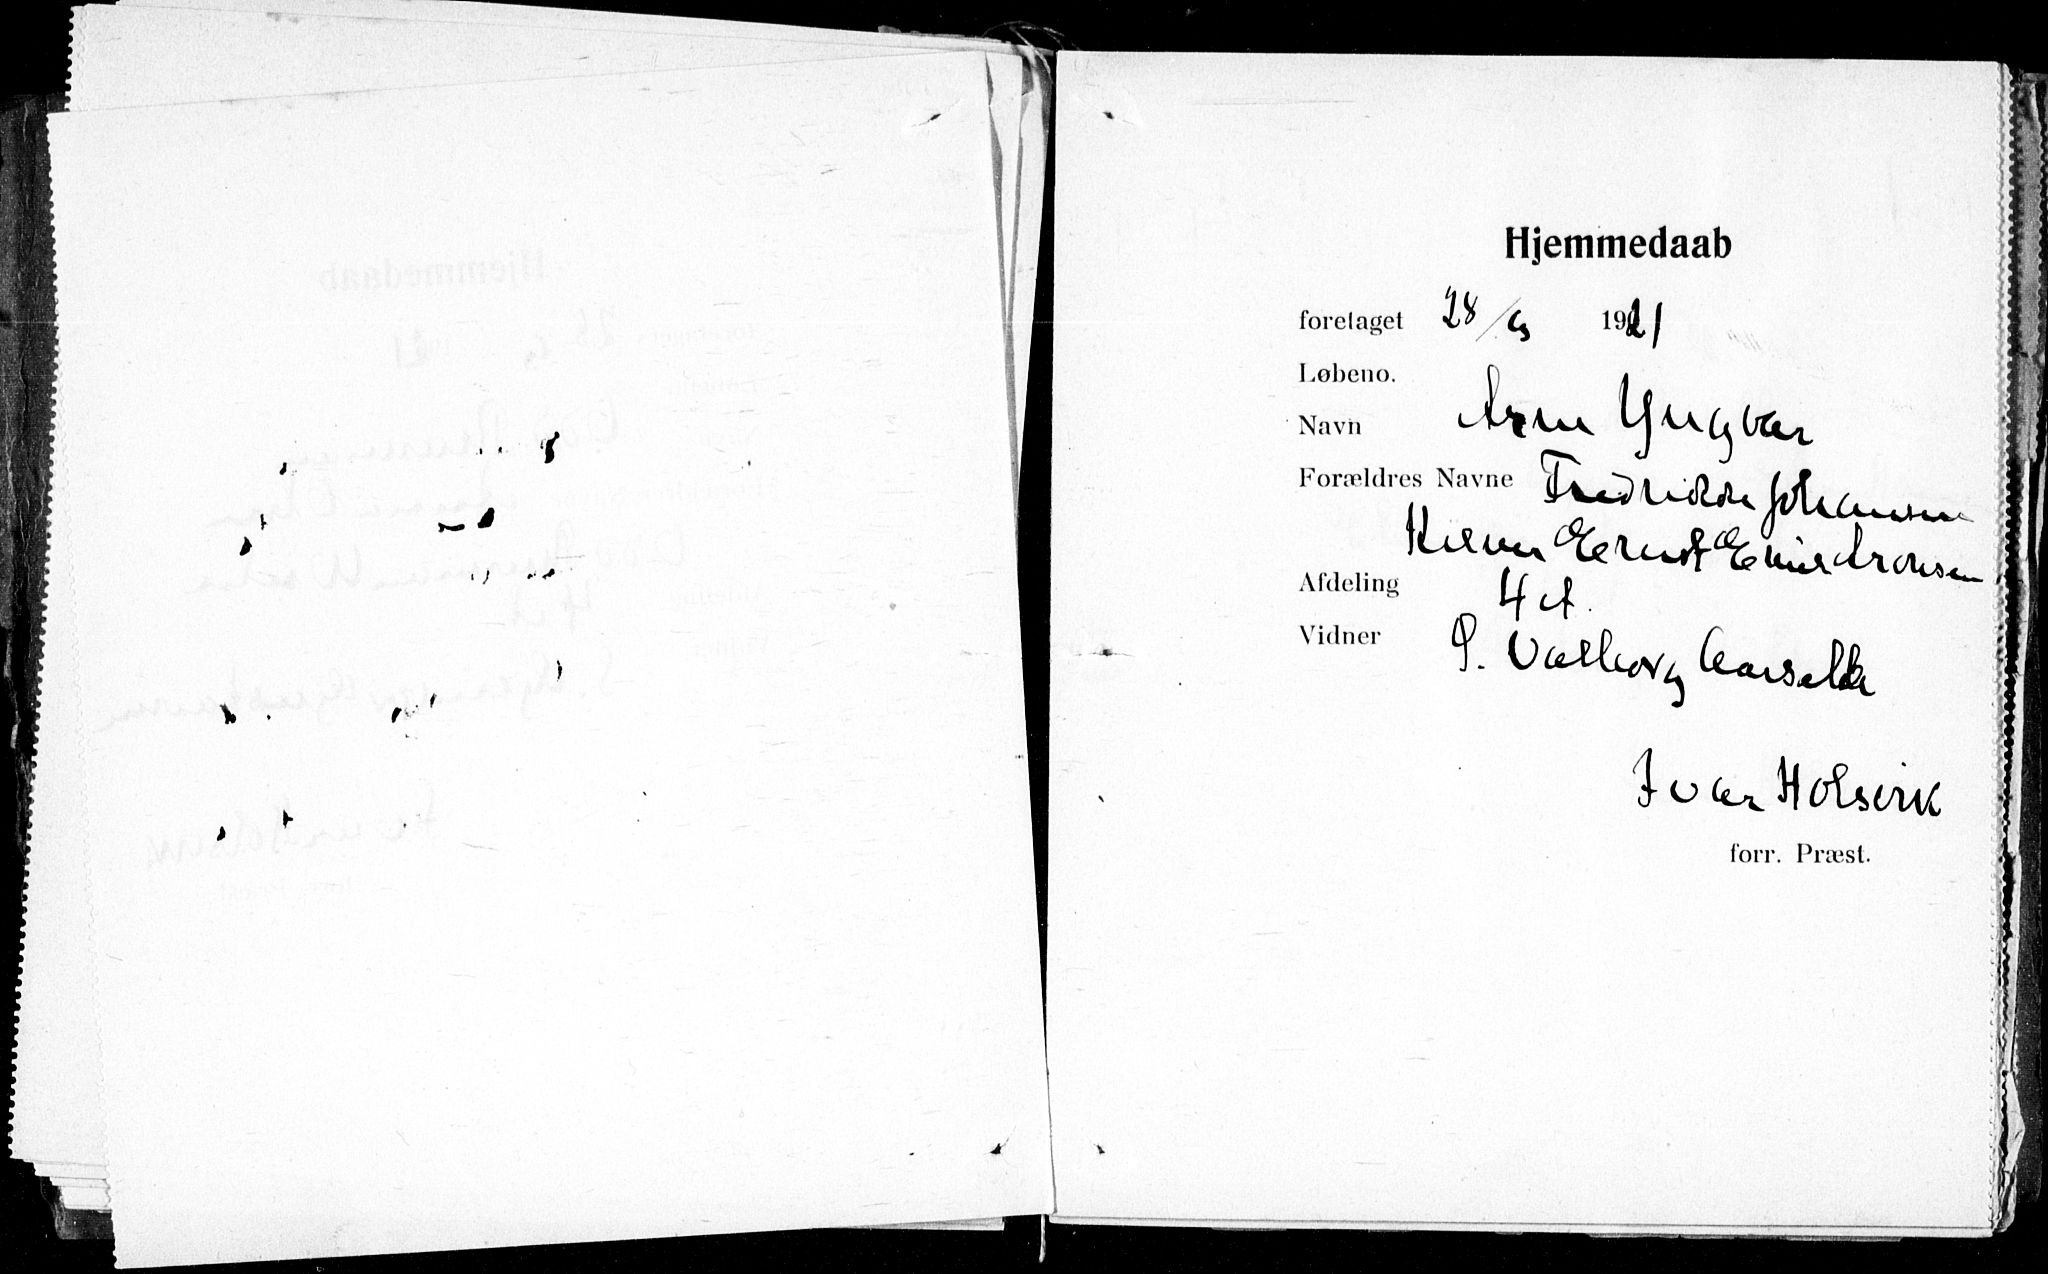 Hjemmedaab
foretaget 28/9 1921
Løbeno.
Navn Arne Yngvar
Forældres Navne Fredrikke Johansen
Ernst Emil Aronsen
Afdeling 4 A.
Vidner S. Valborg
Ivar Holsvik
forr. Præst.